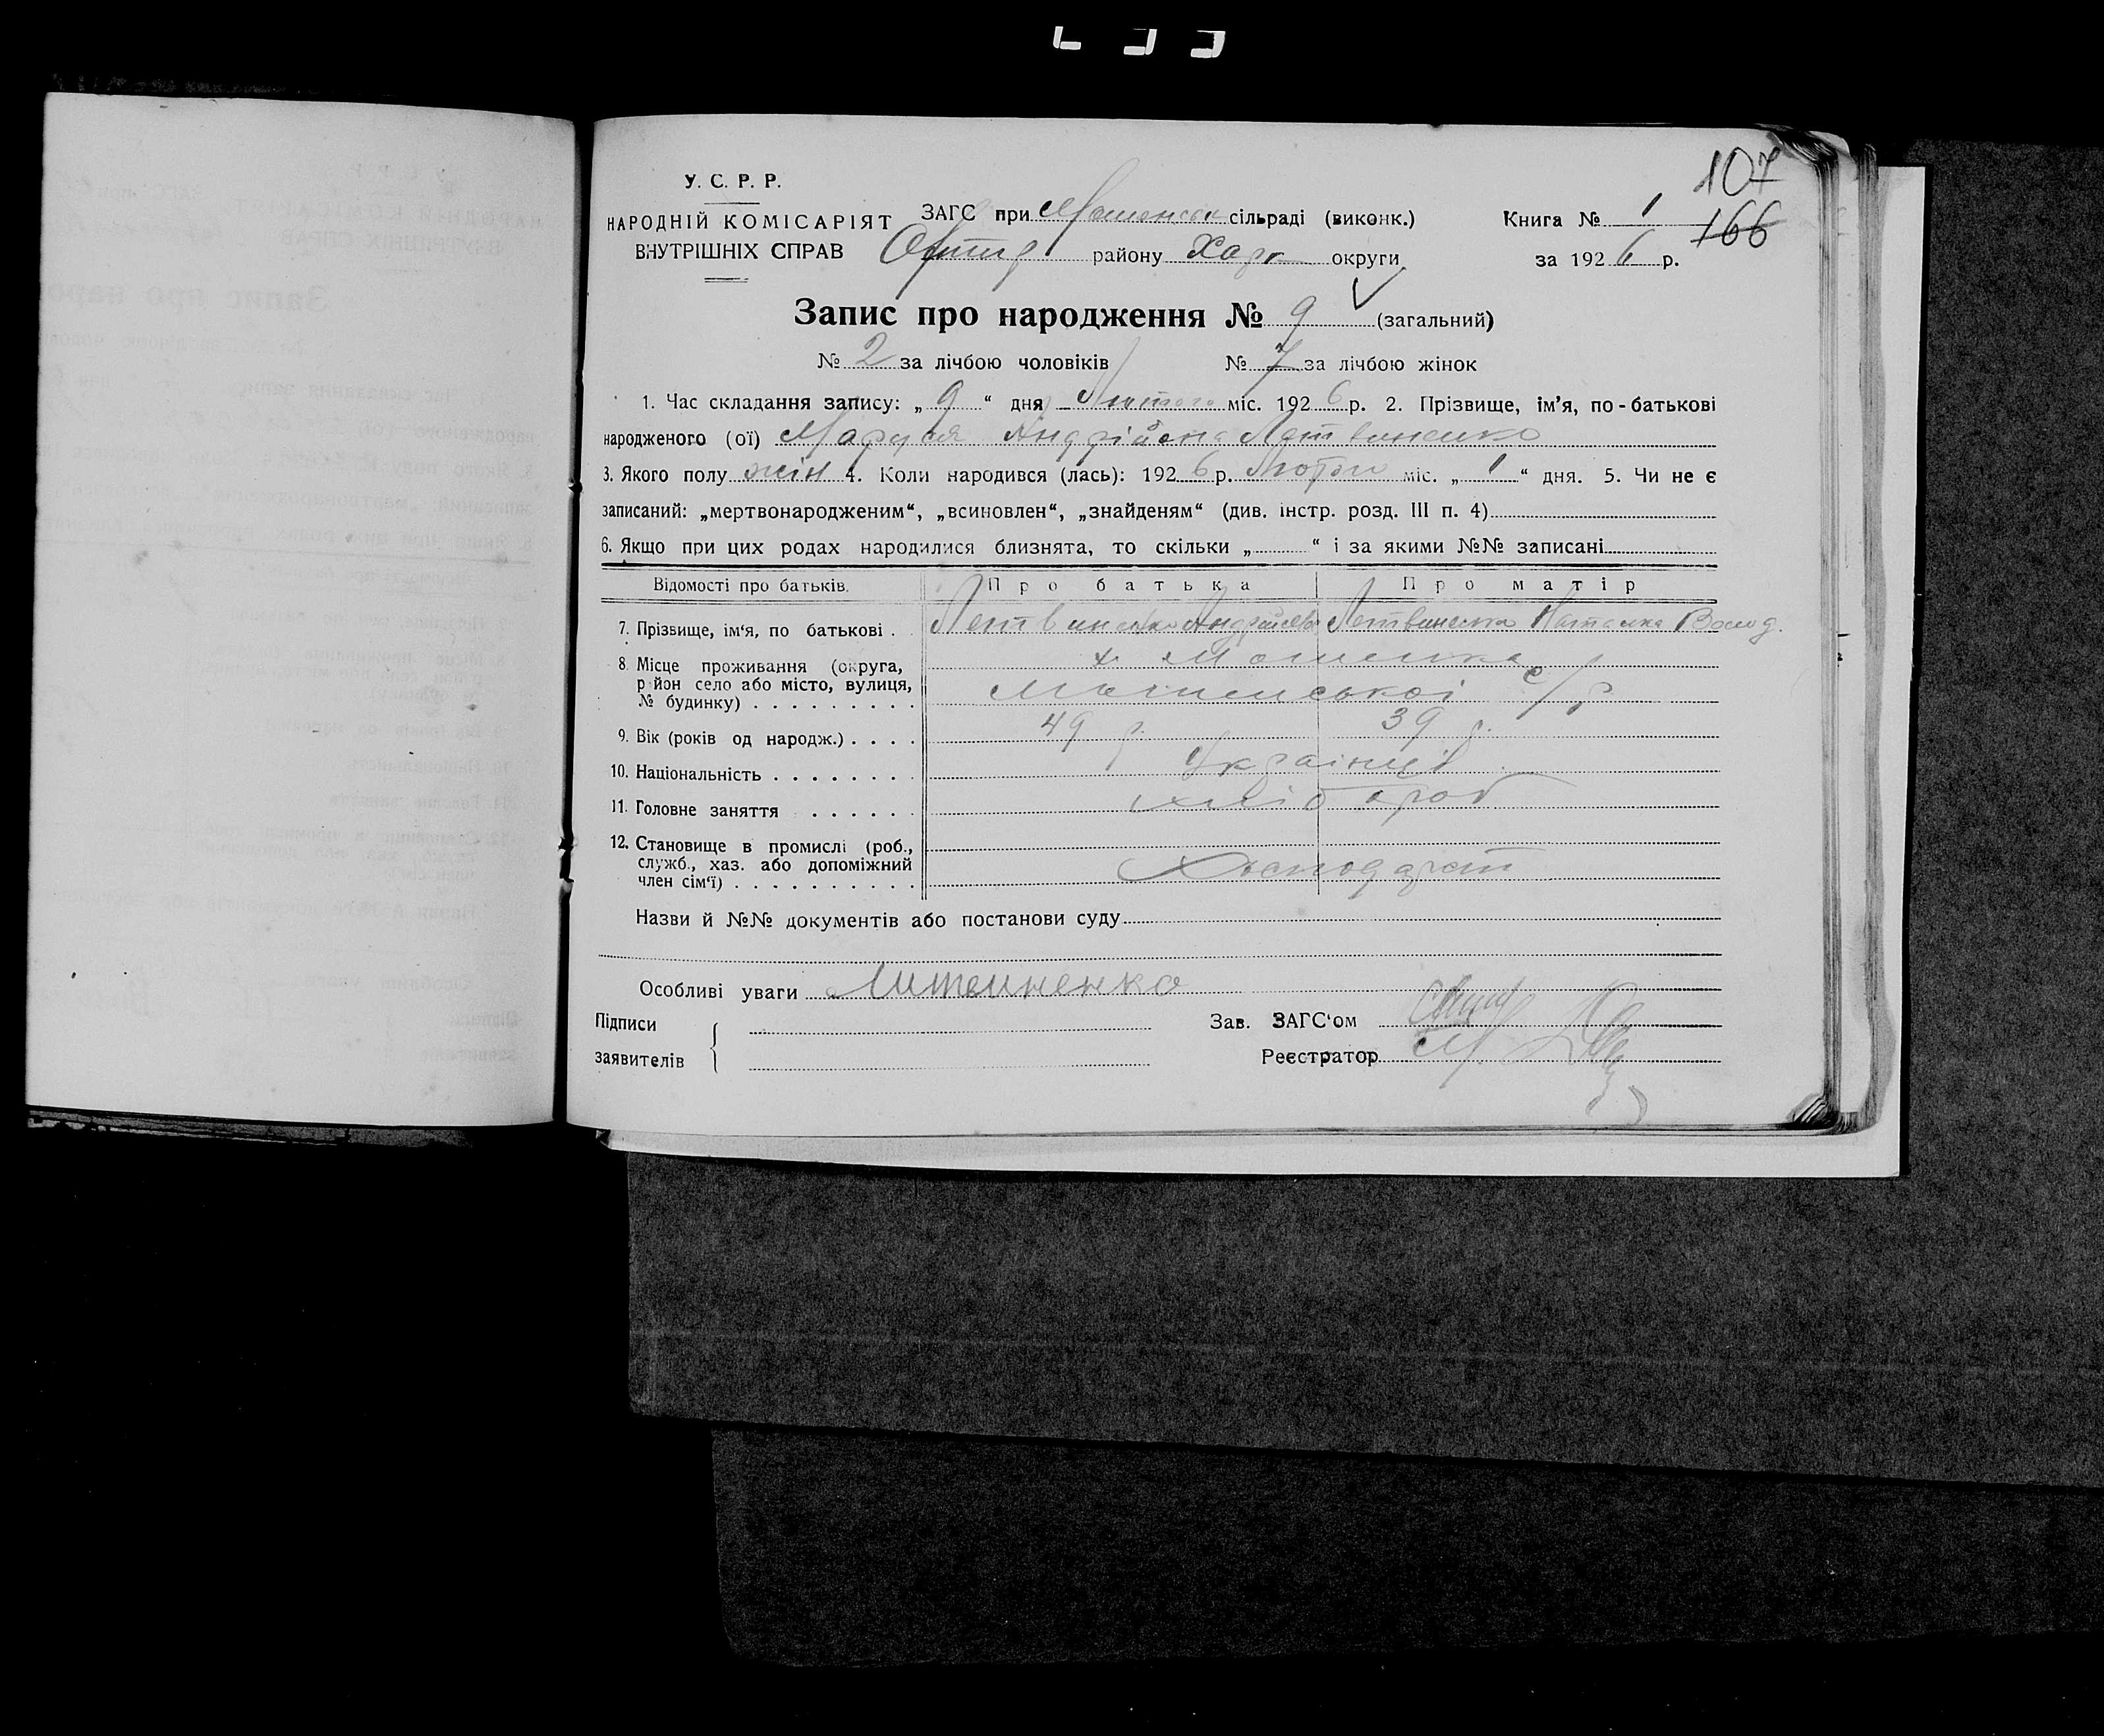 107
166
У. С. Р. Р.
НАРОДНІЙ КОМІСАРІЯТ
ВНУТРІШНІХ СПРАВ
ЗАГС при сільраді (виконк.)
району Харк округи
Книга № 1
за 1926 р.
Запис про народження № 9 (загальний)
№ 2 за лічбою чоловіків № 7 за лічбою жінок
1. Час складання запису: „9“ дня Лютого міс. 1926 р. 2. Прізвище, ім’я, по-батькові
народженого (ої) Маруся Андрійовна Летвиненко
3. Якого полу жін 4. Коли народився (лась): 1926 р. міс. „1“ дня. 5. Чи не є
записаний: „мертвонародженим“, „всиновлен“, „знайденям“ (див. інстр. розд. III п. 4)
6. Якщо при цих родах народилися близнята, то скільки „ “ і за якими №№ записані
Відомості про батьків. Про батька Про матір
7. Прізвище, ім‘я, по батькові . Летвиненко Летвиненко Наталка Волод.
8. Місце проживання (округа, х.
район село або місто, вулиця, с/р
№ будинку) . . . . . . . . .
9. Вік (років од народж.) . . . . 49 р. 39 р.
10. Національність . . . . . . . . Українці
11. Головне заняття . . . . . . хлібороб
12. Становище в промислі (роб.,
служб., хаз. або допоміжний
член сім‘ї) . . . . . . . . . .
Назви й №№ документів або постанови суду
Особливі уваги Литвиненко
Підписи
заявителів
Зав. ЗАГС‘ом
Реєстратор